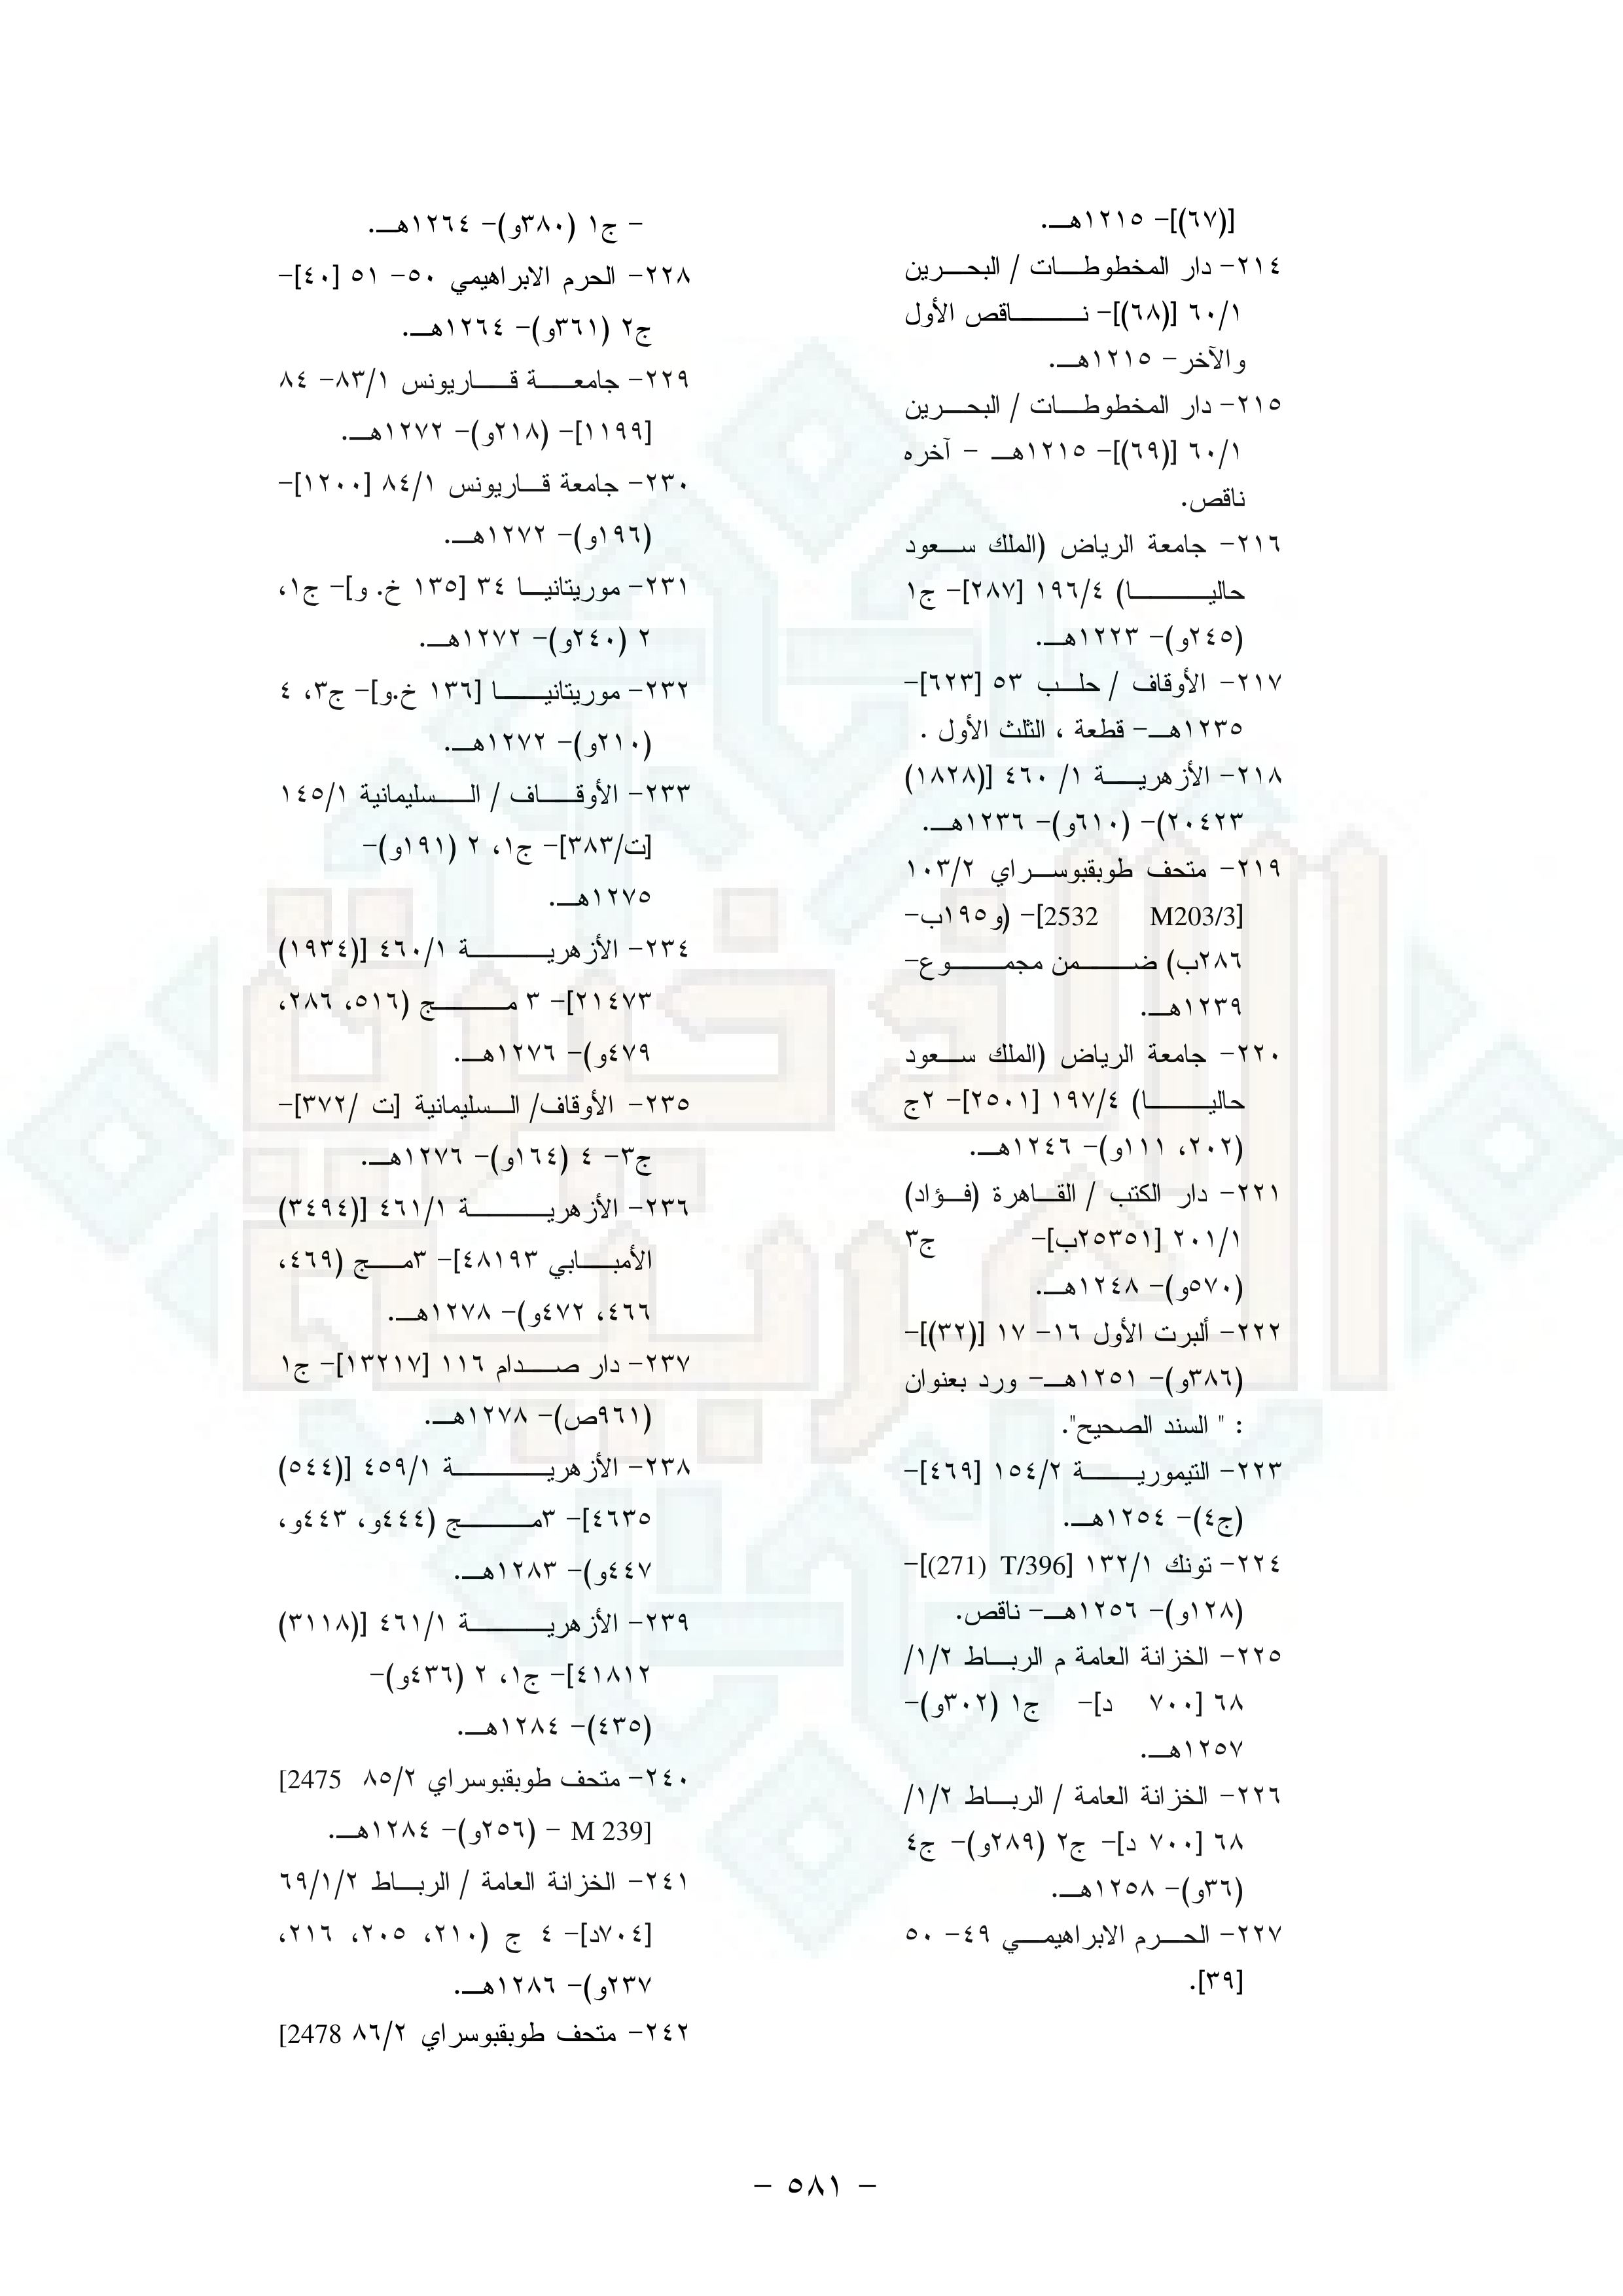 [(٦٧)]- ١٢١٥هـ.
٢١٤- دار المخطوطات / البحرين
٦٠/١ [(٦٨)]- ناقص الأول
والآخر- ١٢١٥هـ.
٢١٥- دار المخطوطات / البحرين
٦٠/١ [(٦٩)]- ١٢١٥هـ - آخره
ناقص.
٢١٦- جامعة الرياض (الملك سعود
حاليا) ١٩٦/٤ [٢٨٧]- ج١
(٢٤٥و)- ١٢٢٣هـ.
٢١٧- الأوقاف / حلب ٥٣ [٦٢٣]-
١٢٣٥هـ- قطعة ، الثلث الأول .
٢١٨- الأزهرية ١/ ٤٦٠ [(١٨٢٨)
٢٠٤٢٣)- (٦١٠و)- ١٢٣٦هـ.
٢١٩- متحف طوبقبوسراي ١٠٣/٢
[2532 M203/3]- (و١٩٥ب-
٢٨٦ب) ضمن مجموع-
١٢٣٩هـ.
٢٢٠- جامعة الرياض (الملك سعود
حاليا) ١٩٧/٤ [٢٥٠١]- ٢ج
(٢٠٢، ١١١و)- ١٢٤٦هـ.
٢٢١- دار الكتب / القاهرة (فؤاد)
٢٠١/١ [٢٥٣٥١ب]- ج٣
(٥٧٠و)- ١٢٤٨هـ.
٢٢٢- ألبرت الأول ١٦- ١٧ [(٣٢)]-
(٣٨٦و)- ١٢٥١هـ- ورد بعنوان
: " السند الصحيح".
٢٢٣- التيمورية ١٥٤/٢ [٤٦٩]-
(ج٤)- ١٢٥٤هـ.
٢٢٤- تونك ١٣٢/١ [T/396 (271)]-
(١٢٨و)- ١٢٥٦هـ- ناقص.
٢٢٥- الخزانة العامة م الرباط ١/٢/
٦٨ [٧٠٠ د]- ج١ (٣٠٢و)-
١٢٥٧هـ.
٢٢٦- الخزانة العامة / الرباط ١/٢/
٦٨ [٧٠٠ د]- ج٢ (٢٨٩و)- ج٤
(٣٦و)- ١٢٥٨هـ.
٢٢٧- الحرم الابراهيمي ٤٩- ٥٠
[٣٩].
- ج١ (٣٨٠و)- ١٢٦٤هـ.
٢٢٨- الحرم الابراهيمي ٥٠- ٥١ [٤٠]-
ج٢ (٣٦١و)- ١٢٦٤هـ.
٢٢٩- جامعة قاريونس ٨٣/١- ٨٤
[١١٩٩]- (٢١٨و)- ١٢٧٢هـ.
٢٣٠- جامعة قاريونس ٨٤/١ [١٢٠٠]-
(١٩٦و)- ١٢٧٢هـ.
٢٣١- موريتانيا ٣٤ [١٣٥ خ. و]- ج١،
٢ (٢٤٠و)- ١٢٧٢هـ.
٢٣٢- موريتانيا [١٣٦ خ.و]- ج٣، ٤
(٢١٠و)- ١٢٧٢هـ.
٢٣٣- الأوقاف / السليمانية ١٤٥/١
[ت/٣٨٣]- ج١، ٢ (١٩١و)-
١٢٧٥هـ.
٢٣٤- الأزهرية ٤٦٠/١ [(١٩٣٤)
٢١٤٧٣]- ٣ مج (٥١٦، ٢٨٦،
٤٧٩و)- ١٢٧٦هـ.
٢٣٥- الأوقاف/ السليمانية [ت /٣٧٢]-
ج٣- ٤ (١٦٤و)- ١٢٧٦هـ.
٢٣٦- الأزهرية ٤٦١/١ [(٣٤٩٤)
الأمبابي ٤٨١٩٣]- ٣مج (٤٦٩،
٤٦٦، ٤٧٢و)- ١٢٧٨هـ.
٢٣٧- دار صدام ١١٦ [١٣٢١٧]- ج١
(٩٦١ص)- ١٢٧٨هـ.
٢٣٨- الأزهرية ٤٥٩/١ [(٥٤٤)
٤٦٣٥]- ٣مج (٤٤٤و، ٤٤٣و،
٤٤٧و)- ١٢٨٣هـ.
٢٣٩- الأزهرية ٤٦١/١ [(٣١١٨)
٤١٨١٢]- ج١، ٢ (٤٣٦و)-
(٤٣٥)- ١٢٨٤هـ.
٢٤٠- متحف طوبقبوسراي ٨٥/٢ [2475
M 239] - (٢٥٦و)- ١٢٨٤هـ.
٢٤١- الخزانة العامة / الرباط ٦٩/١/٢
[٧٠٤د]- ٤ ج (٢١٠، ٢٠٥، ٢١٦،
٢٣٧و)- ١٢٨٦هـ.
٢٤٢- متحف طوبقبوسراي ٨٦/٢ [2478
- ٥٨١ -
الذخيرة
العربية